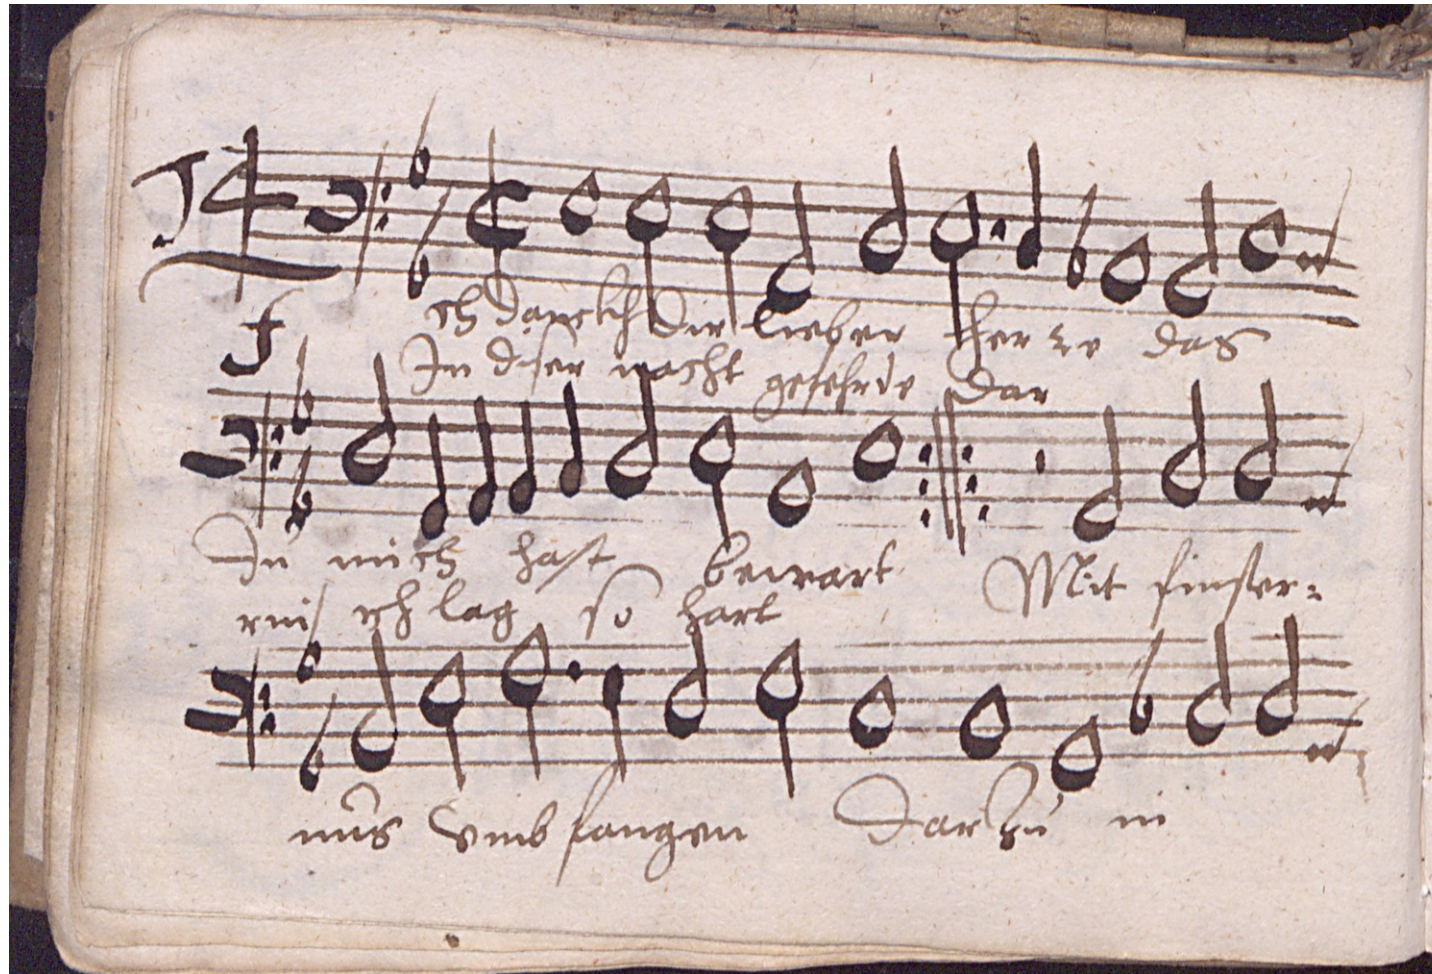 Ich danckh dir lieber herre das
In diser nacht geferde dar
du mich hast bewart Mit finster=
rin ich lag so hart
nus vmbfangen Dar zu in